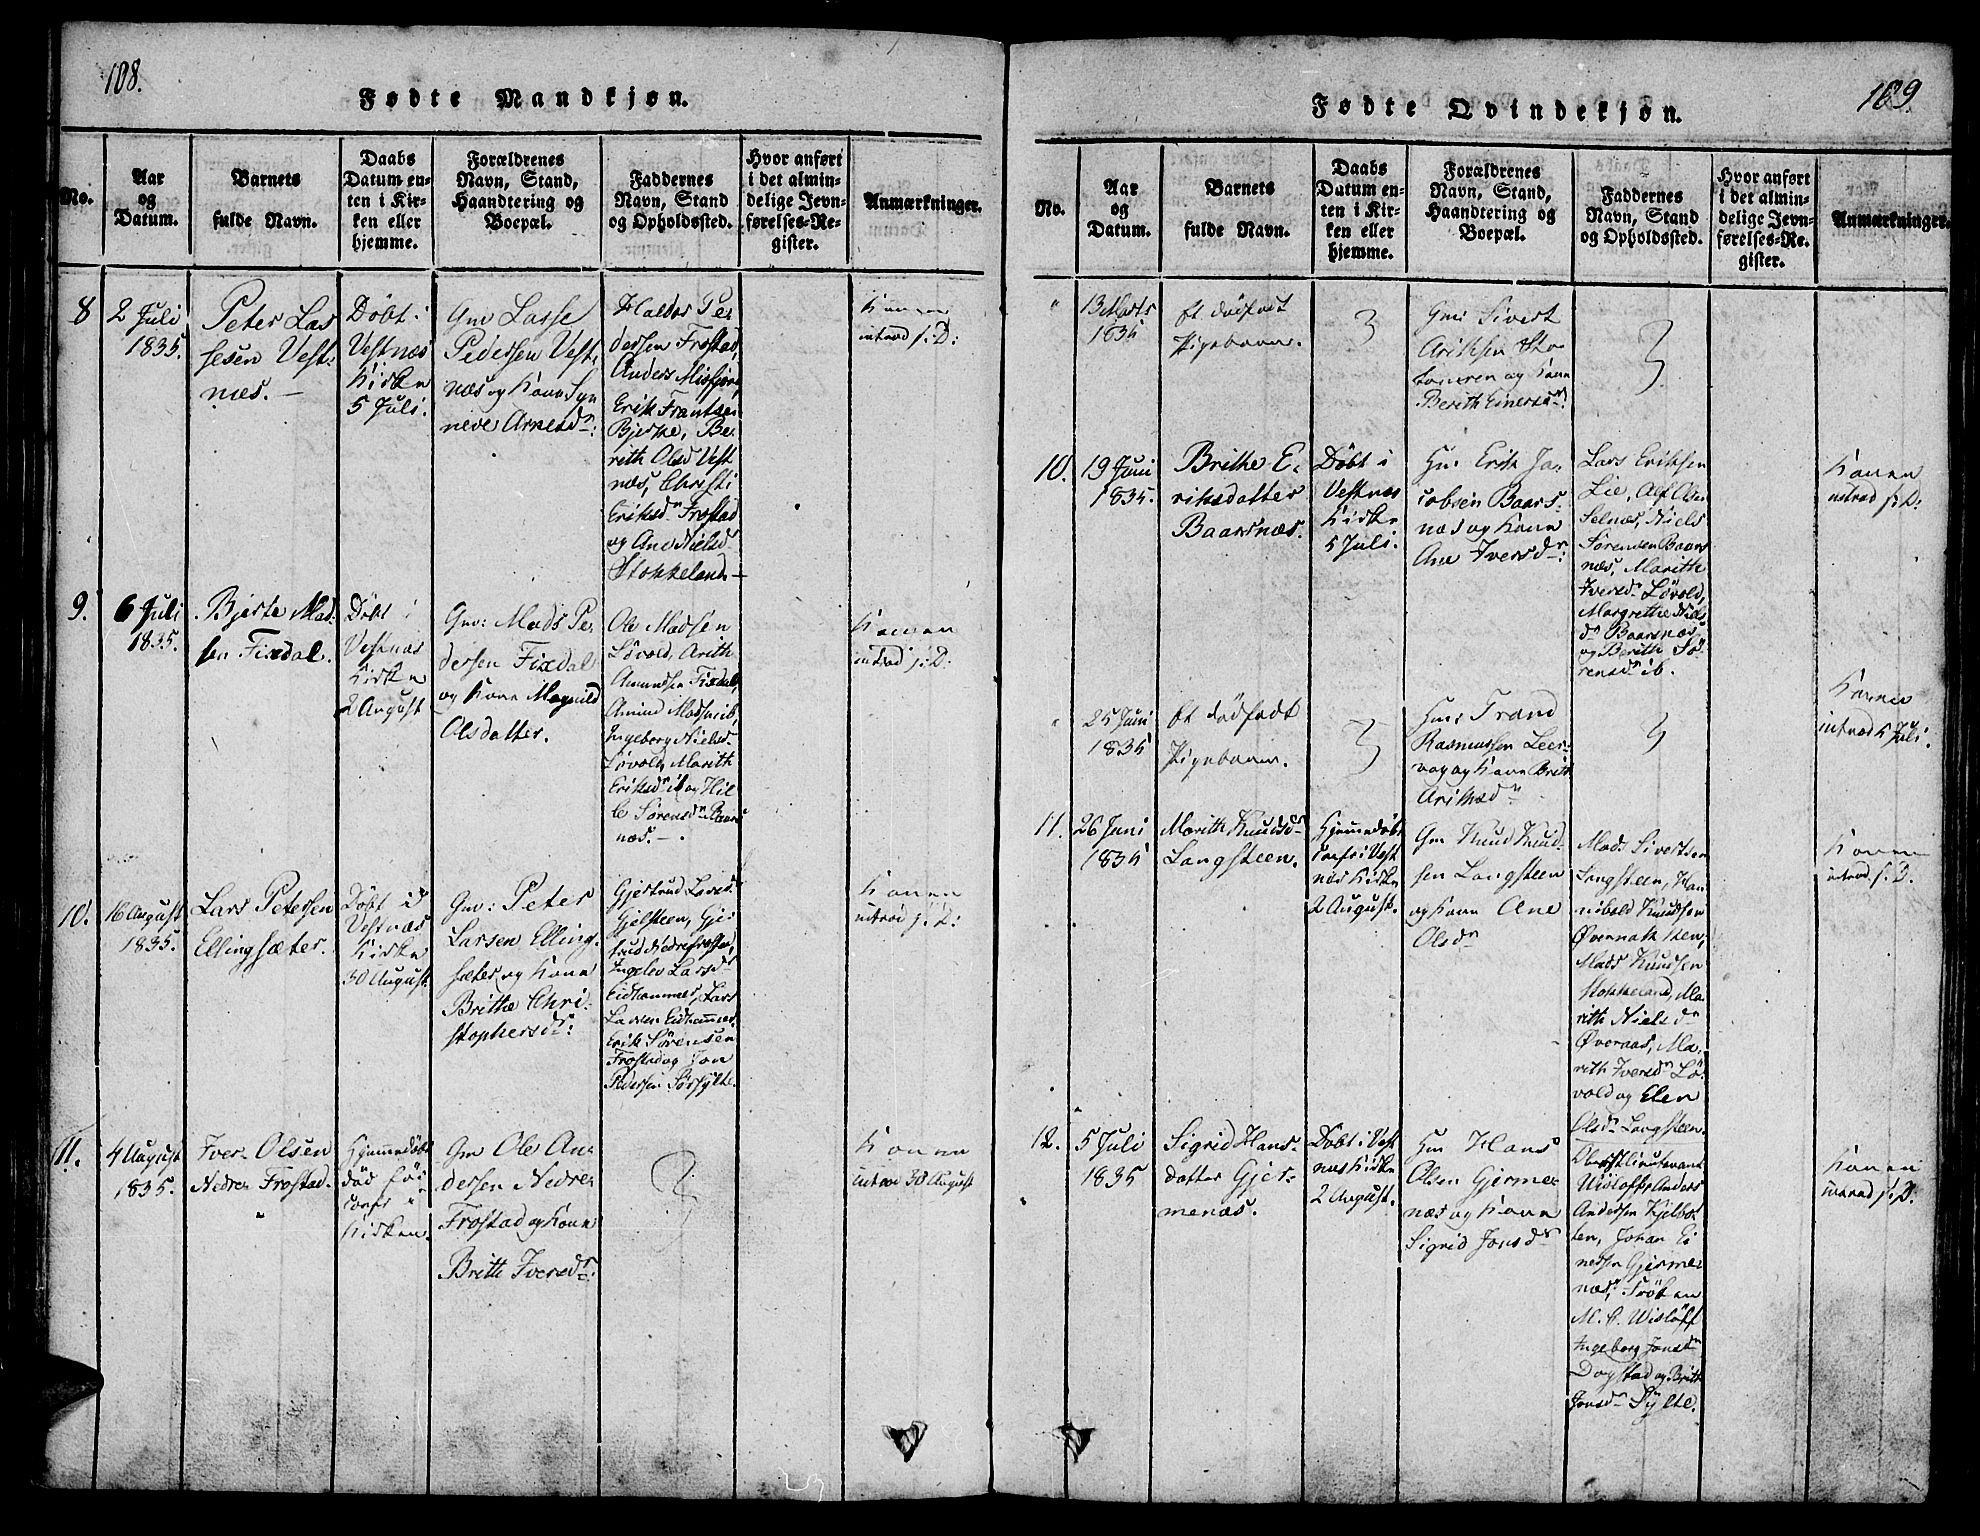 108.
Fødte Mandkjøn.
No.
Aar
og
Datum.
Barnets
fulde Navn.
Daabs
Datum en-
ten i Kir-
ken eller
hjemme.
Forældrenes
Navn, Stand,
Haandtering og
Boepæl.
Faddernes
Navn, Stand
og Opholdssted.
Hvor anført
i det almin-
delige Jevn-
førelses-Re-
gister.
Anmærkninger.
8
2 Juli
1835.
Peter Las
sesen Vest-
næs.
Døbt i
Vestnæs
Kirke
5 Juli.
Gm Lasse
Pedersen Vest,
næs og Kone Syn
neve Arnesdr:
Haldor Pe,
dersen Frostad,
Anders Misfjord,
Erik Frantsen
Bjerke, Be,
rith Olsd Vest
næs, Christi
Eriksdr Frostad
og Ane Nielsd
Stokkeland
Konen
introd s. D:
9.
6 Juli
1835.
Bjerte Mad-
sen Fixdal.
Døbt i
Vestnæs
Kirke
2 August
Gm: Mads Pe,
dersen Fixdal
og Kone Magnild
Olsdatter.
Ole Madsen
Løvold, Arith
Amundsen Fixdal,
Amund Madsen ib,
Ingeborg Nielsd.
Løvold, Marith
Eriksdr ib og Hil
Sørensdr Baars
næs.
Konen
introd s. D:
10.
16 August
1835.
Lars Petersen
Ellingsæter.
Døbt i
Vestnæs
Kirke
30 August.
Gm: Peter
Larsen Elling,
sæter og Kone
Brithe Chri,
stophersdr:
Gjertrud Larsd.
Gjelsteen, Gje,
trud Nedrefrostad,
Ingelev Larsdr
Eidhammer, Lars
Larsen Eidhammer,
Erik Sørensen
Frostad og Jon
Pedersen Sørsylte.
Konen
introd s. D:
11.
4 August
1835.
Iver Olsen
Nedre Frostad.
Hjemmedøbt
død før
conf i
Kirken.
Gm Ole An,
dersen Nedre
Frostad og Kone
Brithe Iversdr:
Konen
introd 30 August
109.
Fødte Qvindekjøn.
No.
Aar
og
Datum.
Barnets
fulde Navn.
Daabs
Datum en-
ten i Kir-
ken eller
hjemme.
Forældrenes
Navn, Stand,
Haandtering og
Boepæl.
Faddernes
Navn, Stand
og Opholdssted.
Hvor anført
i det almin-
delige Jevn-
førelses-Re-
gister.
Anmærkninger.
"
13 Marts
1835
Et dødfødt
Pigebarn.
Gm: Sivert
Ariksen
og Kone
Berith Einersdr:
10.
19 Juni
1835.
Brithe E,
riksdatter
Baarsnæs.
Døbt i
Vestnæs
Kirke
5 Juli.
Gm: Erik Ja,
cobsen Baars-
næs og Kone
Ane Iversdr:
Lars Eriksen
Lie, Alf Olsen
Selnæs, Niels
Sørensen Baars
næs, Marithe
Iversdr Løvold,
Margrethe Niels
dr Baarsnæs
og Berith Sø-
rensdr ib.
Konen
introd s. D:
"
25 Juni
1835
Et dødfødt
Pigebarn.
Gm: Trond
Rasmussen Leer-
vog og Kone Brith
Ariksdr
Konen
introd 5 Juli.
11.
26 Juni
1835
Marith Knudsdr
Langsteen.
Hjemmedøbt
conf i Vest
næs Kirke
2 August.
Gm Knud Knud-
sen Langsteen
og Kone Ane
Olsdr
Mads Sivertsen
Langsteen, Han
nibold Knudsen
Øvernakken,
Mads Knudsen
Stokkeland, Ma-
rith Nielsdr
Øveraas, Ma-
rith Iversdr Lø-
vold og Elen
Olsdr Langsteen.
Konen
introd s. D.
12.
5 Juli
1835
Sigrid Hans-
datter Gjer-
menæs.
Døbt i Vest
næs Kirke
2 August.
Gm Hans
Olsen Gjerme-
næs og Kone
Sigrid Jonsdr
Oberstlieutenant
Wisløff, Anders
Andersen Kjelbot
ten, Johan Ei
nersen Gjerme-
næs, Frøken
M. C. Wisløff
Ingeborg Jonsdr
Dagstad og Brith
Jonsdr Sylte.
Konen
introd s. D.